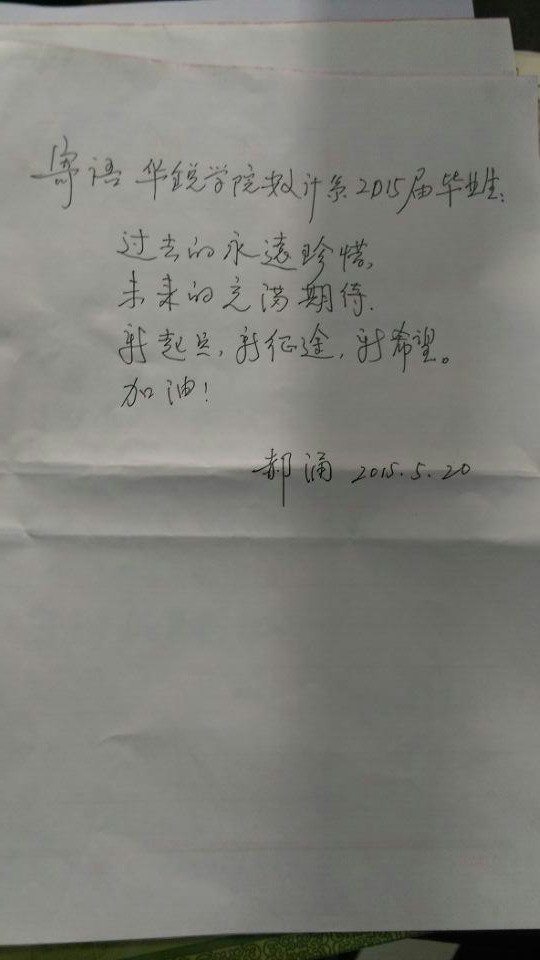 寄语华锐学院数计系2015届毕业生:
过去的永远珍惜,
未来的充满期待.
新起点,新征途,新希望。
加油!
郝涌 2015.5.20